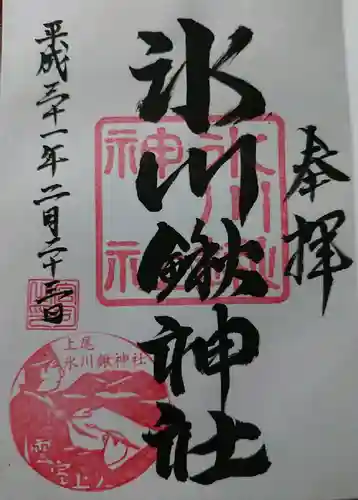 奉拝
氷川鍬神社
平成三十一年二月二十三日
氷川鍬
神社
上尾
氷川鍬神社